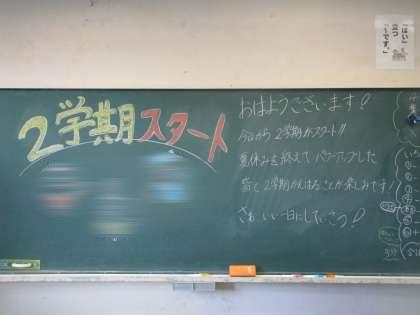 2学期スタート
おはようございます!
今日から2学期がスタート!!
夏休みを終えてパワーアップした
皆と2学期がんばることが楽しみです!
さぁ いい一日にしていこう!
「はい」
立つ
「〜です。」